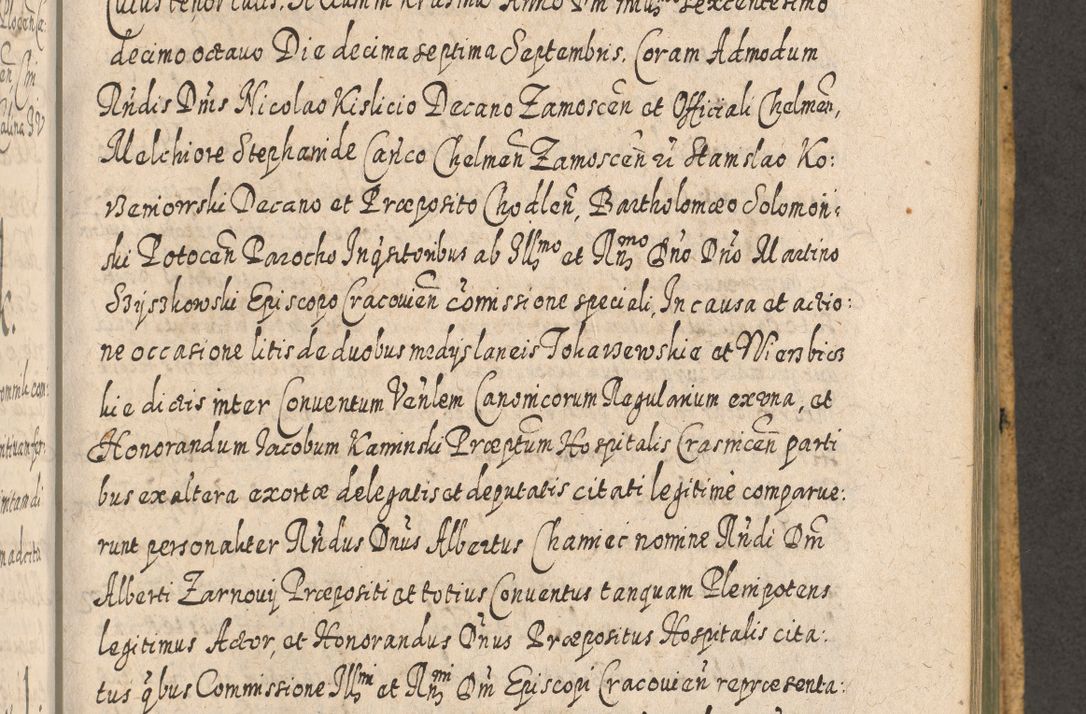 Cuius tenor talis. Actum in Krasnik Anno Dni Millmo Sexcentesimo
decimo octavo Die decima septima Septembris. Coram Admodum
Rñdis Dñis Nicolao Kislicio Decano Zamosceñ et Officiali Chelmeñ,
Melchiore Stephanide Cañco Chelmeñ Zamosceñ ri Stanislao Ko:
rzeniowski Decano et Præposito Chodleñ, Bartholomæo Solomoñ:
ski Potoceñ Parocho Inqsitoribus ab Illmo et Rñmo Dño Dño Martino
Szyszkowski Episcopo Cracovieñ comissione speciali, In causa et actio:
ne occasione litis de duobus medys laneis Tokarzewskie et Wierzbicz
kie dictis inter Conventum Veñlem Canonicorum Regularium ex vna, et
Honorandum Jacobum Kaminski Præptum Hospitalis Crasniceñ parti
bus ex altera exortæ delegatis et deputatis citati legitimè comparue:
runt personaliter Rñdus Dñus Albertus Chamiec nomine Rñdi Dñi
Alberti Zarnovij Præpositi et totius Conventus tanquam Plenipotens
legitimus Actor, et Honorandus Dñus Præpositus Hospitalis cita:
tus qbus Commissione Illmi et Rñmi Dñi Episcopi Cracovieñ repræsenta: